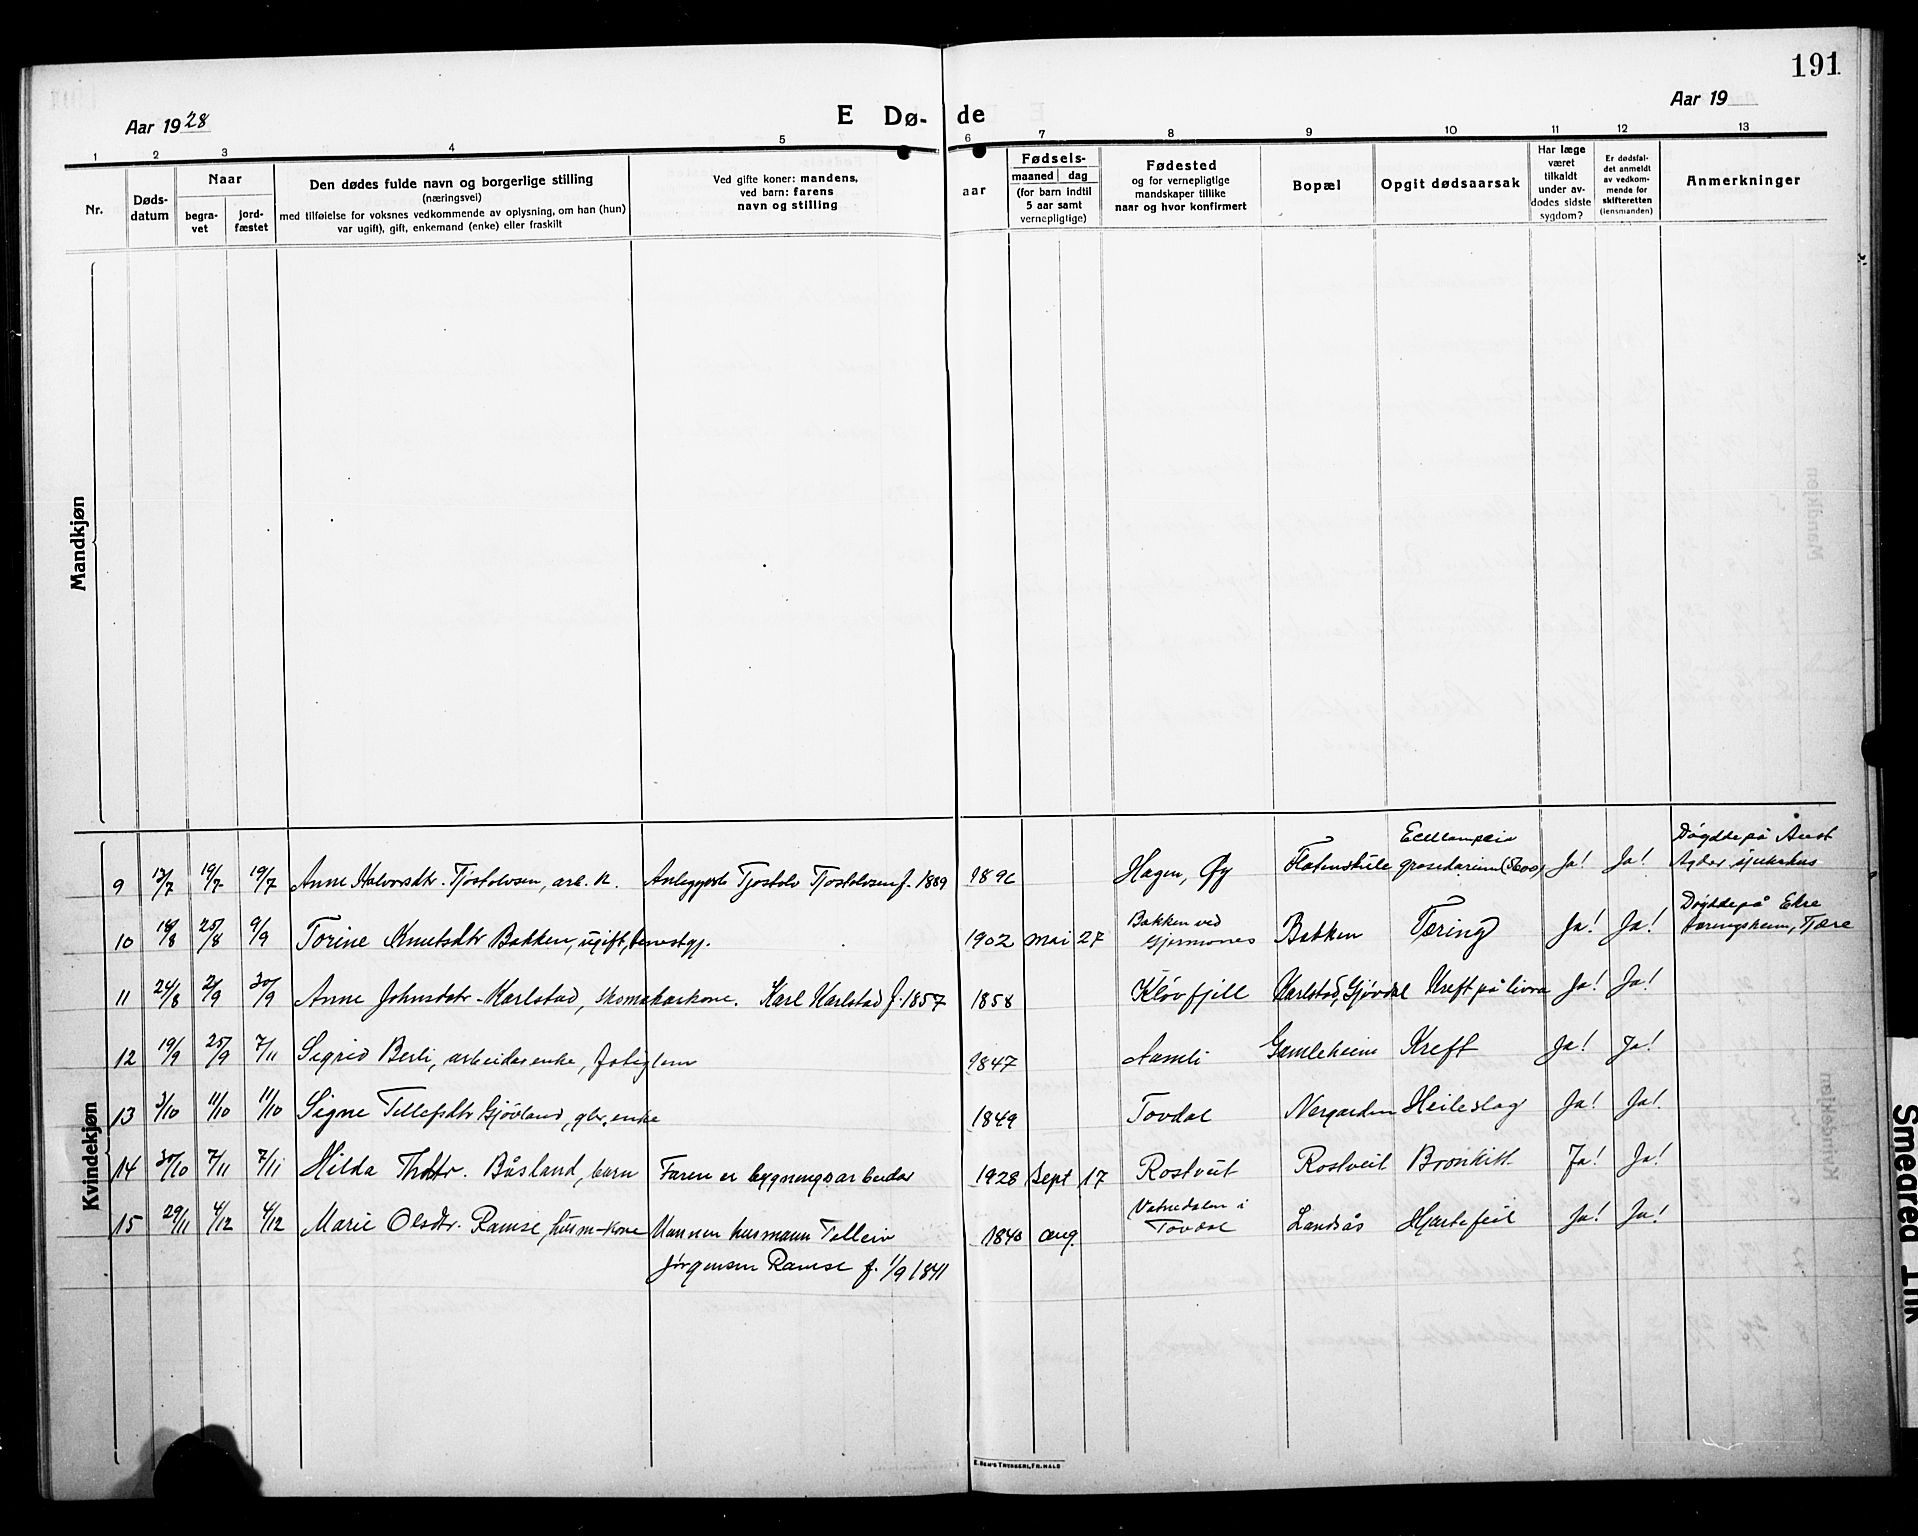 191
Aar 1928
E Dø- de
Aar 19
1 2 3 4 5 6 7 8 9 10 11 12 13
Nr.
Døds-
datum
Naar
begra-
vet
jord-
fæstet
Den dødes fulde navn og borgerlige stilling
(næringsvei)
med tilføielse for voksnes vedkommende av oplysning, om han (hun)
var ugift), gift, enkemand (enke) eller fraskilt
Ved gifte koner: mandens,
ved barn: farens
navn og stilling
aar
Fødsels-
maaned dag
(for barn indtil
5 aar samt
vernepligtige)
Fødested
og for vernepligtige
mandskaper tillike
naar og hvor konfirmert
Bopæl
Opgit dødsaarsak
Har læge
været
tilkaldt
under av-
dødes sidste
sygdom?
Er dødsfal-
det anmeldt
av vedkom-
mende for
skifteretten
(lensmanden)
Anmerkninger
Mandkjøn
Kvindekjøn
9 13/7 19/7 19/7 Anne Halvorsdtr. Tjostolvsen, arb. k. Tjostolv Tjostolvsen f. 1889 1896 Hagen, Øy Ja! Ja! Døydde på Aust
Agder sjukehus
10 18/8 25/8 9/9 Torine Knutsdtr Bakken, ugift, 1902 mai 27 Bakken ved
Gjermones Bakken Tæring Ja! Ja! Døydde på Ekre
tæringsheim, Tjære
11 24/8 2/9 30/9 Anne Johnsdtr - Karlstad, skomakarkone. Karl Karlstad f. 1857 1858 Kløvfjell Karlstad, Gjøvdal Kreft på livra Ja! Ja!
12 19/9 25/9 7/11 Sigrid Berli, arbeidarenke, 1847 Aamli Gamleheim Kreft Ja! Ja!
13 3/10 11/10 11/10 Signe Tellefsdtr Gjøvland, gbr. enke 1849 Tovdal Nergarden Heileslag Ja! Ja!
14 30/10 7/11 7/11 Hilda Båsland, barn Faren er bygningsarbeidar 1928 Sept 17 Rostveit Rostveit Bronkitt Ja! Ja!
15 29/11 4/12 4/12 Marie Olsdtr. Ramse, husm-kone Mannen husmann Tellein
Jørgensen Ramse f. 1/9 1841 1840 aug. Vatnedalen i
Tovdal Landsås Hjartefeil Ja! Ja!
Smeared Ink